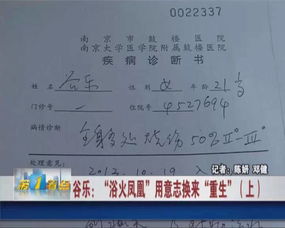 0022337
南京市鼓楼医院
南京大学医学院附属鼓楼医院
疾病诊断书
姓名 谷乐 性别 女 年龄 21岁
门诊号 住院号 4527694
病情诊断 全身多处烧伤50%Ⅱ°-Ⅲ°
处理意见 2012.10.19 入
记者：陈妍 邓健
谷乐：“浴火凤凰”用意志换来“重生”（上）